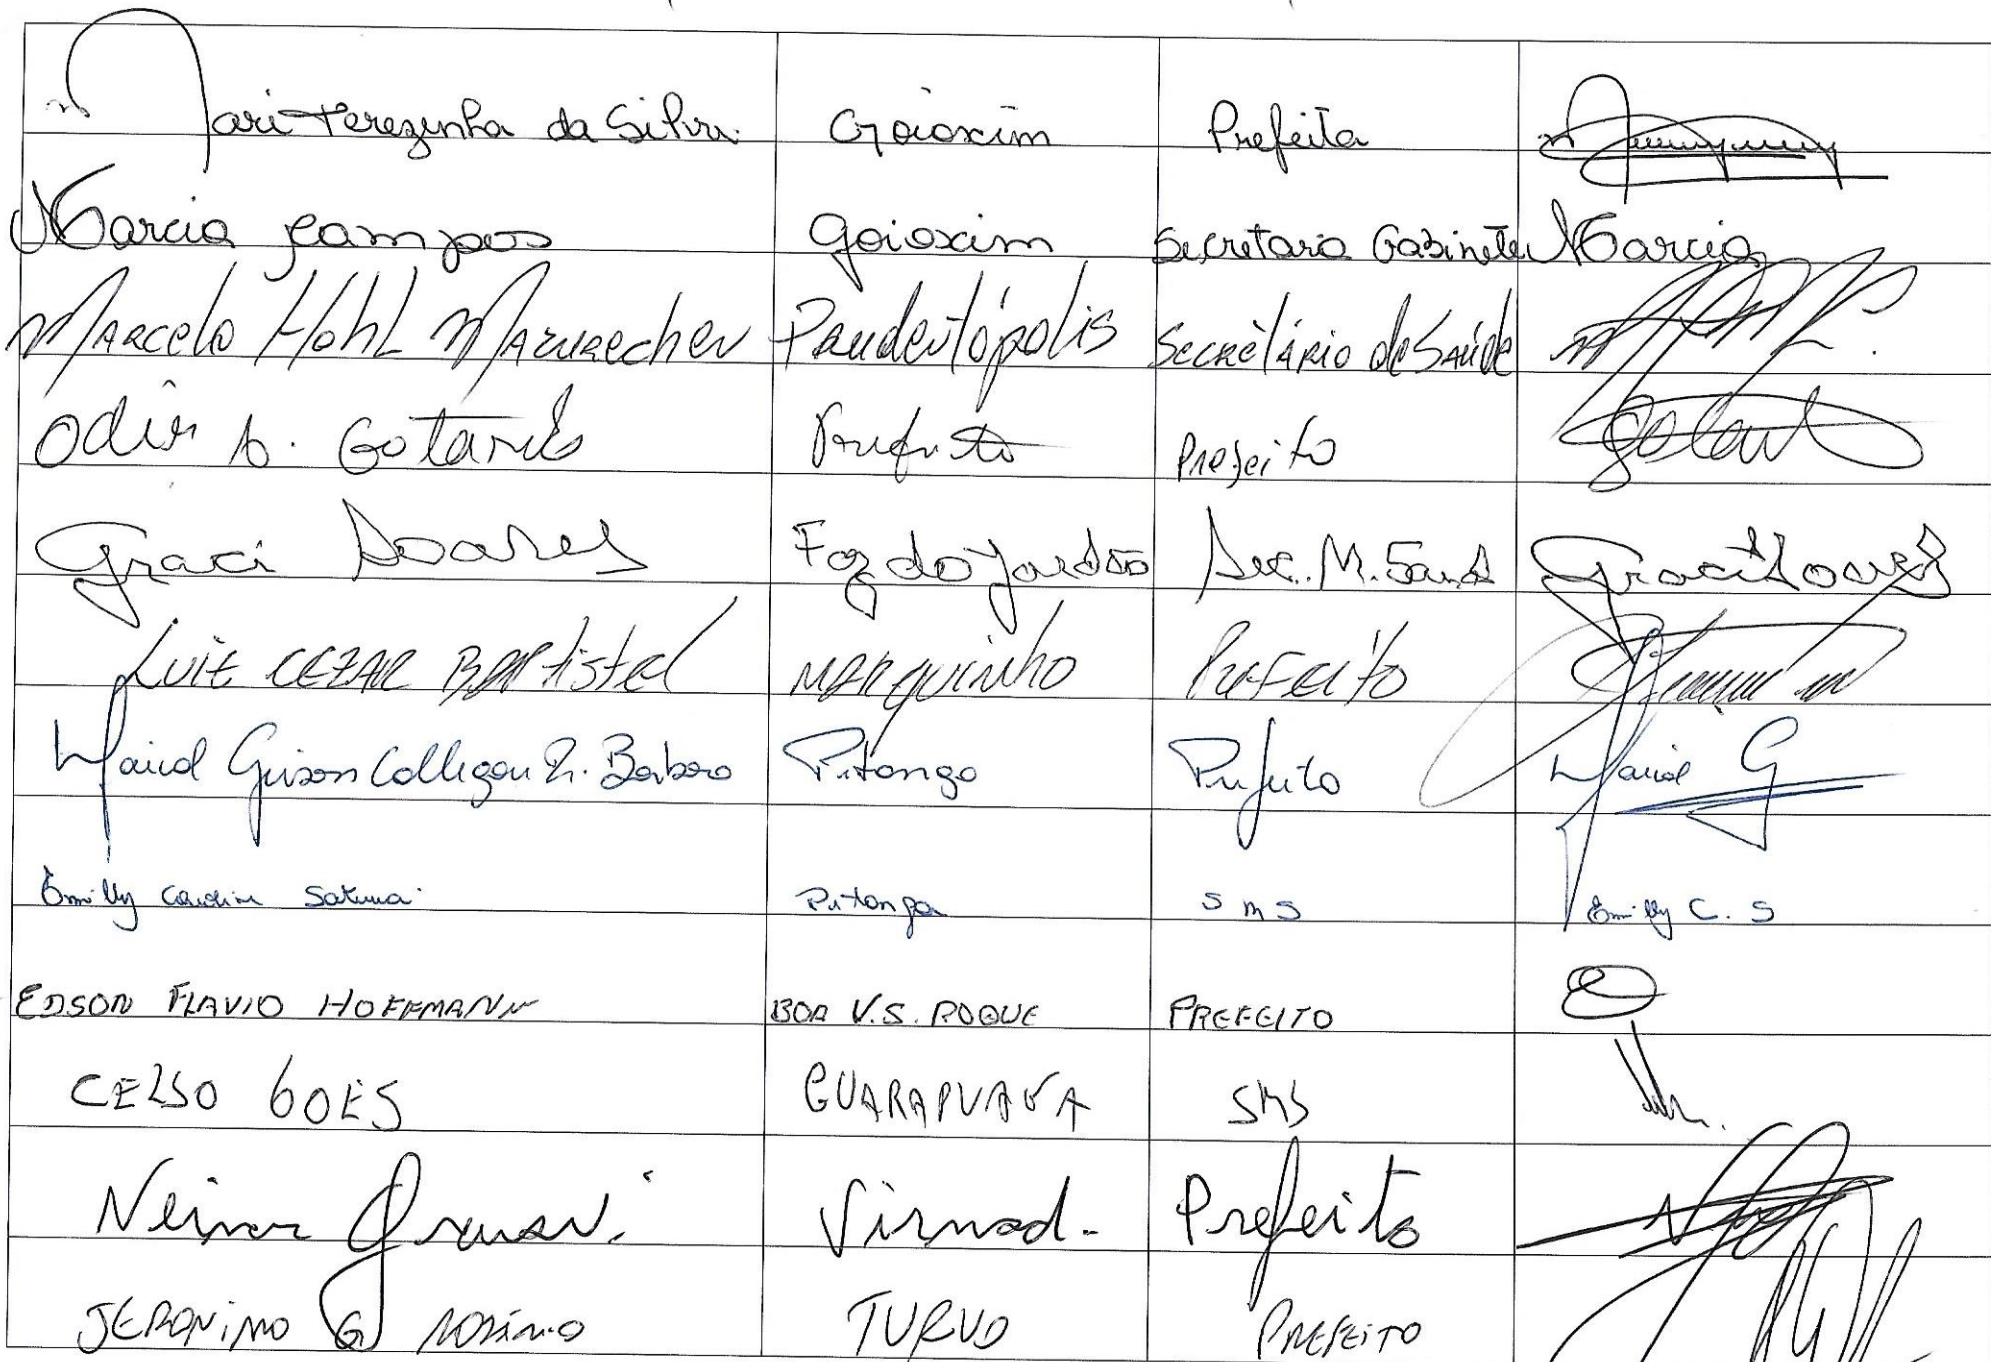 Mari Terezinha da Silva Goioxim Prefeita
Marcia Campos Goioxim Secretaria Gabinete Marcia
Marcelo Hohl Mazurechen Prudentópolis Secretário de Saúde
Odir A. Gotardo Prefeito Prefeito
Graci Soares Foz do Jordão Sec. M. Saúde Graci Soares
LUIZ CEZAR BAPtistel MARQUINHO PREFEITO
Maicol Pitanga Prefeito Maicol G
Emilly Caroline Pitanga SMS Emilly C. S
EDSON FLAVIO HOFFMANN BOA V.S. ROQUE PREFEITO
CELSO GOES GUARAPUAVA SMS
Neimar Virmond Prefeito
JERONIMO G ROSÁRIO TURVO PREFEITO